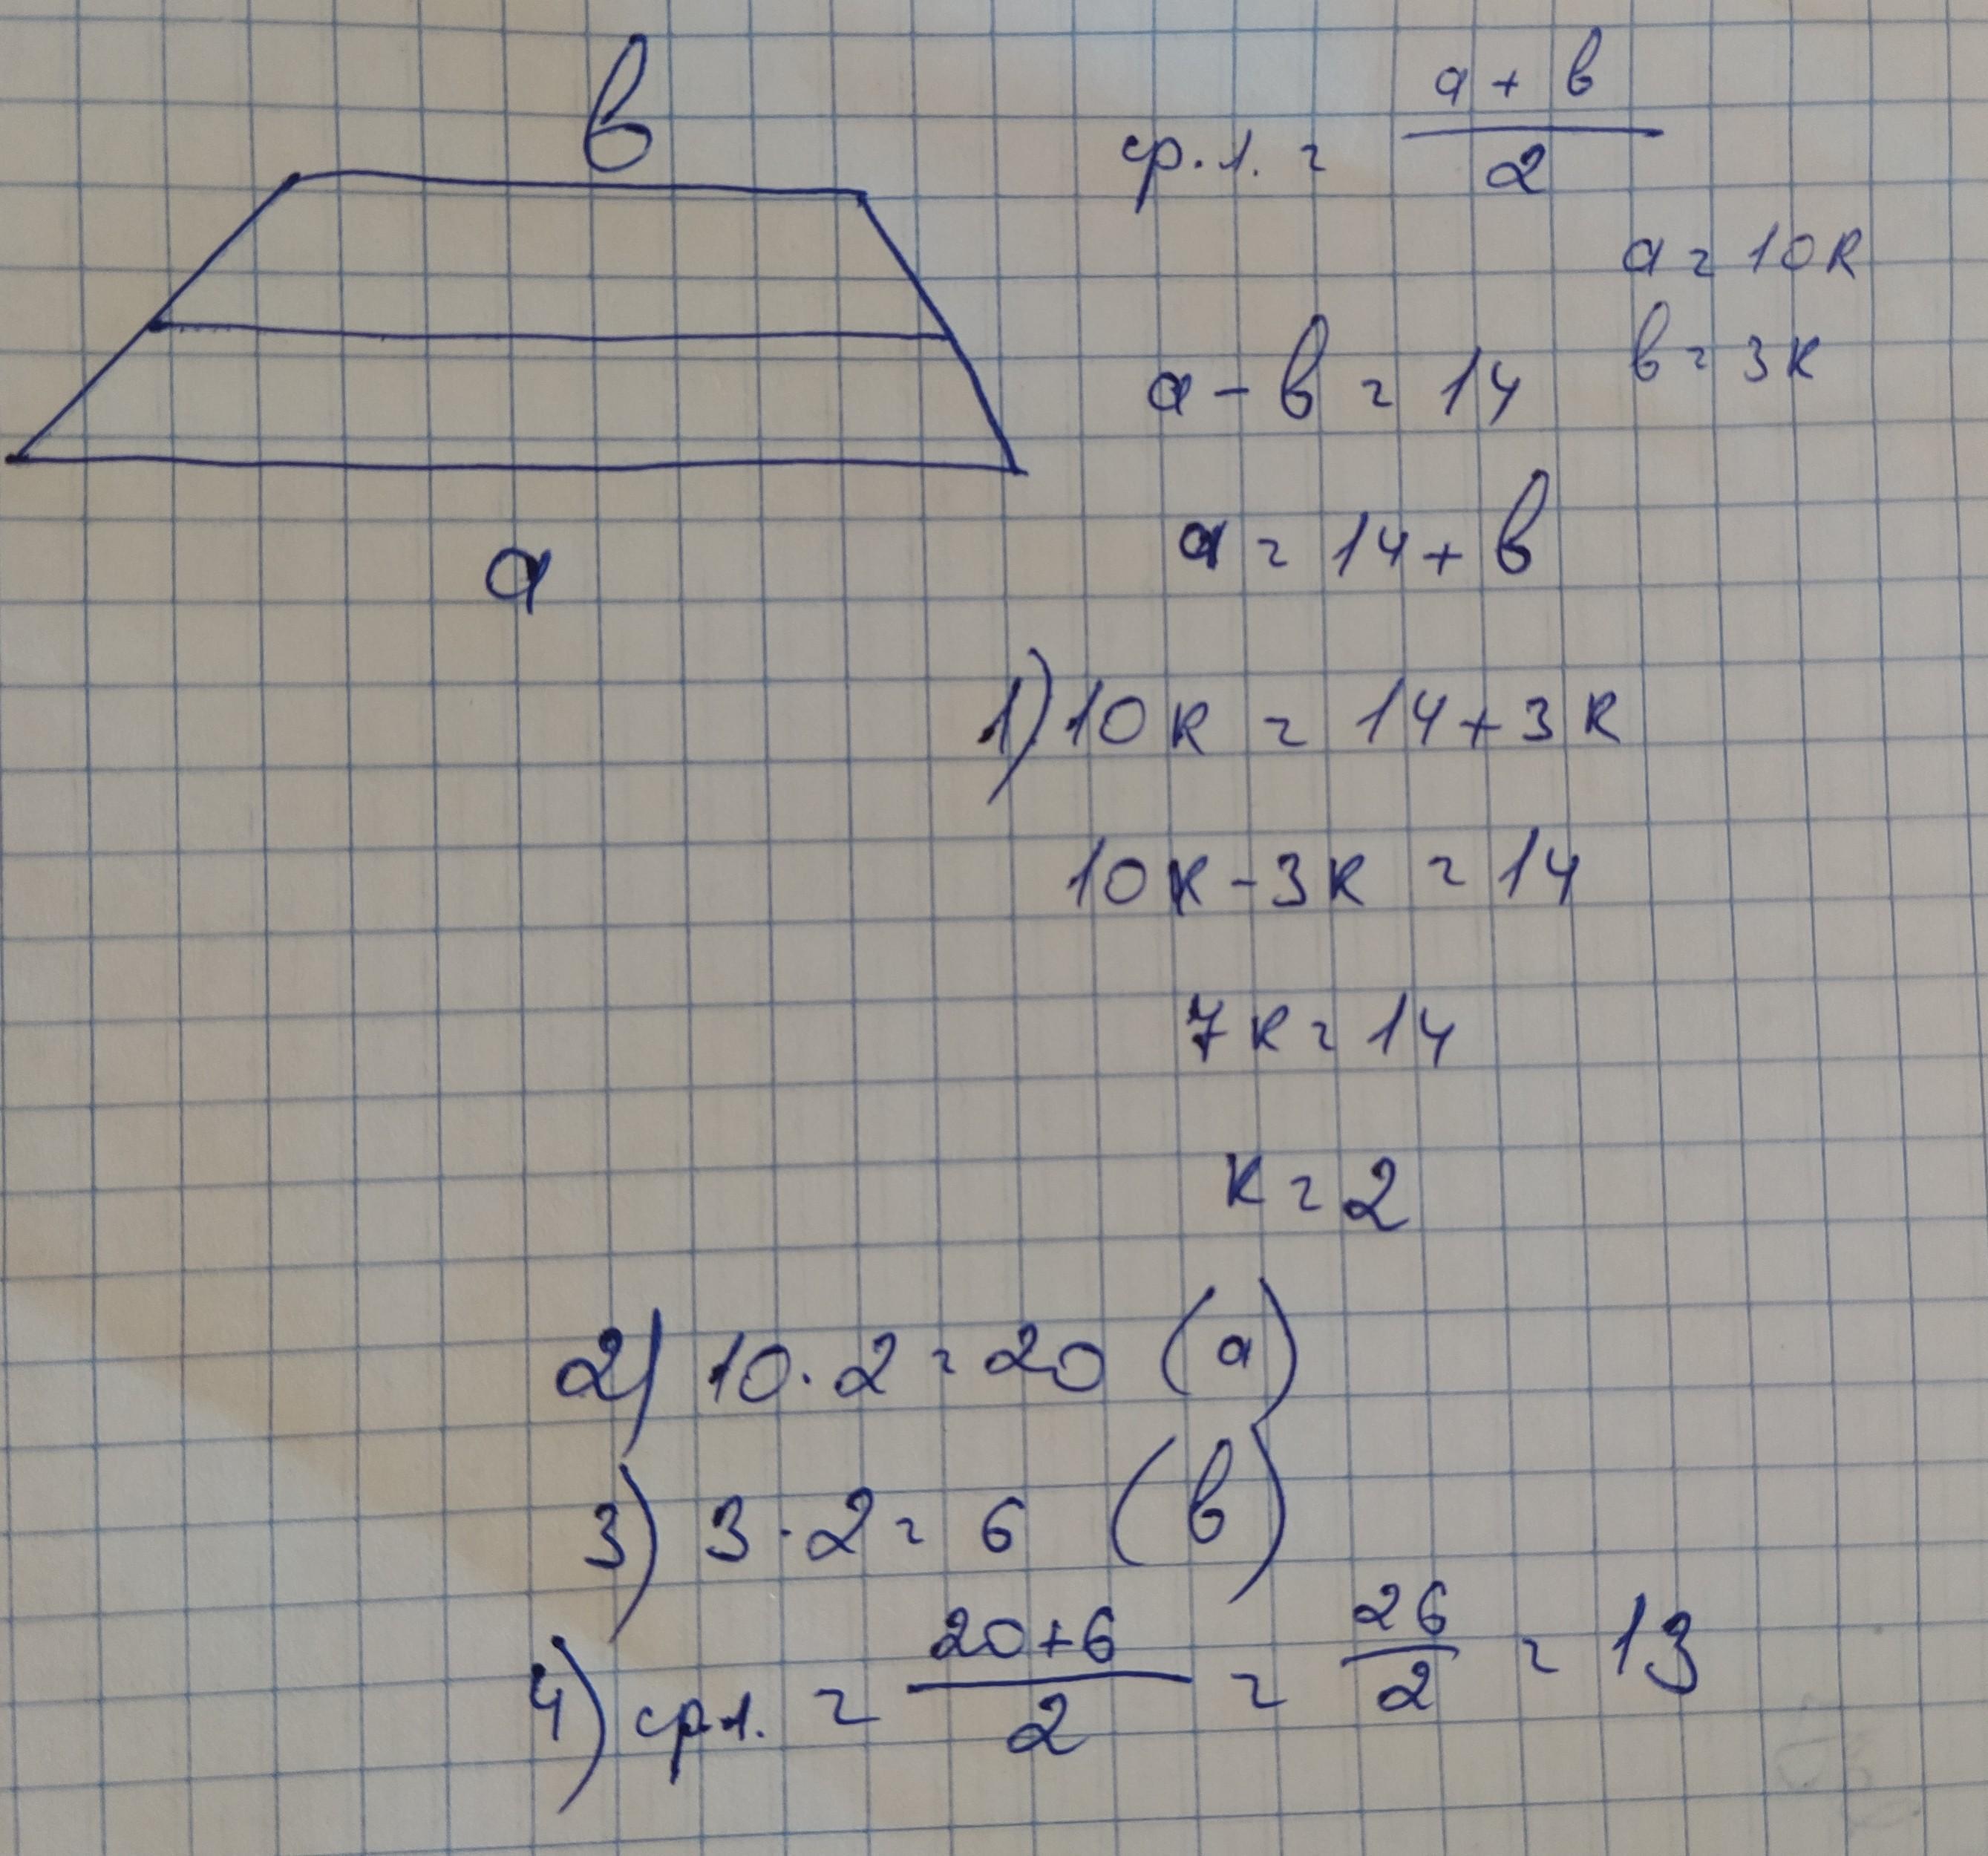 в
ср.л. = (a + в)/2
a = 10к
в = 3к
a - в = 14
a = 14 + в
a
1) 10к = 14 + 3к
10к - 3к = 14
7к = 14
к = 2
2) 10 · 2 = 20 (a)
3) 3 · 2 = 6 (в)
4) ср.л. = (20+6)/2 = 26/2 = 13